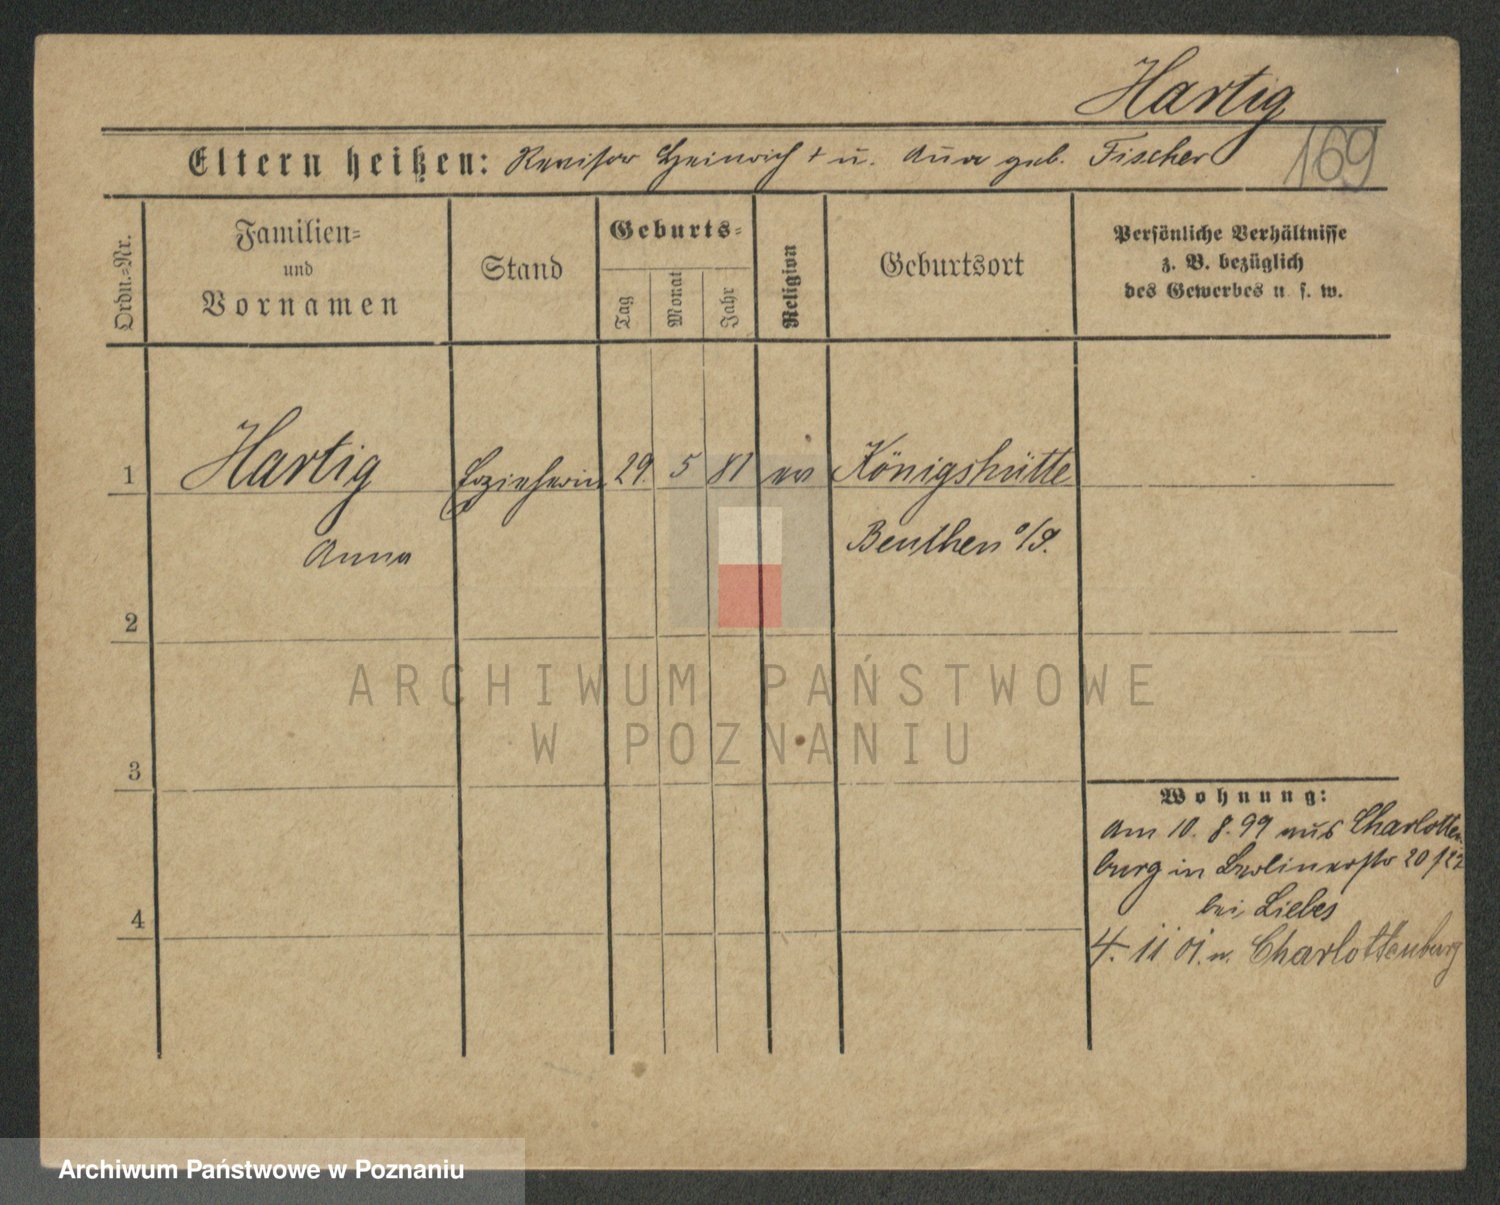 Hartig
169
Eltern heißen: Revisor Heinrich † u. Anna geb. Fischer
Ordn.=Nr.
Familien=
und
Vornamen
Stand
Geburts=
Tag
Monat
Jahr
Religion
Geburtsort
Persönliche Verhältnisse
z. B. bezüglich
des Gewerbes u. s. w.
1 Hartig Erzieherin 29. 5 81 ev Königshütte
Anna Beuthen o/S.
2
3
4
Wohnung:
Am 10. 8. 99 aus Charlotten
burg in Berlinerstr 20/22
bei Liebes
4. 11 01. n. Charlottenburg
ARCHIWUM PAŃSTWOWE
W POZNANIU
Archiwum Państwowe w Poznaniu